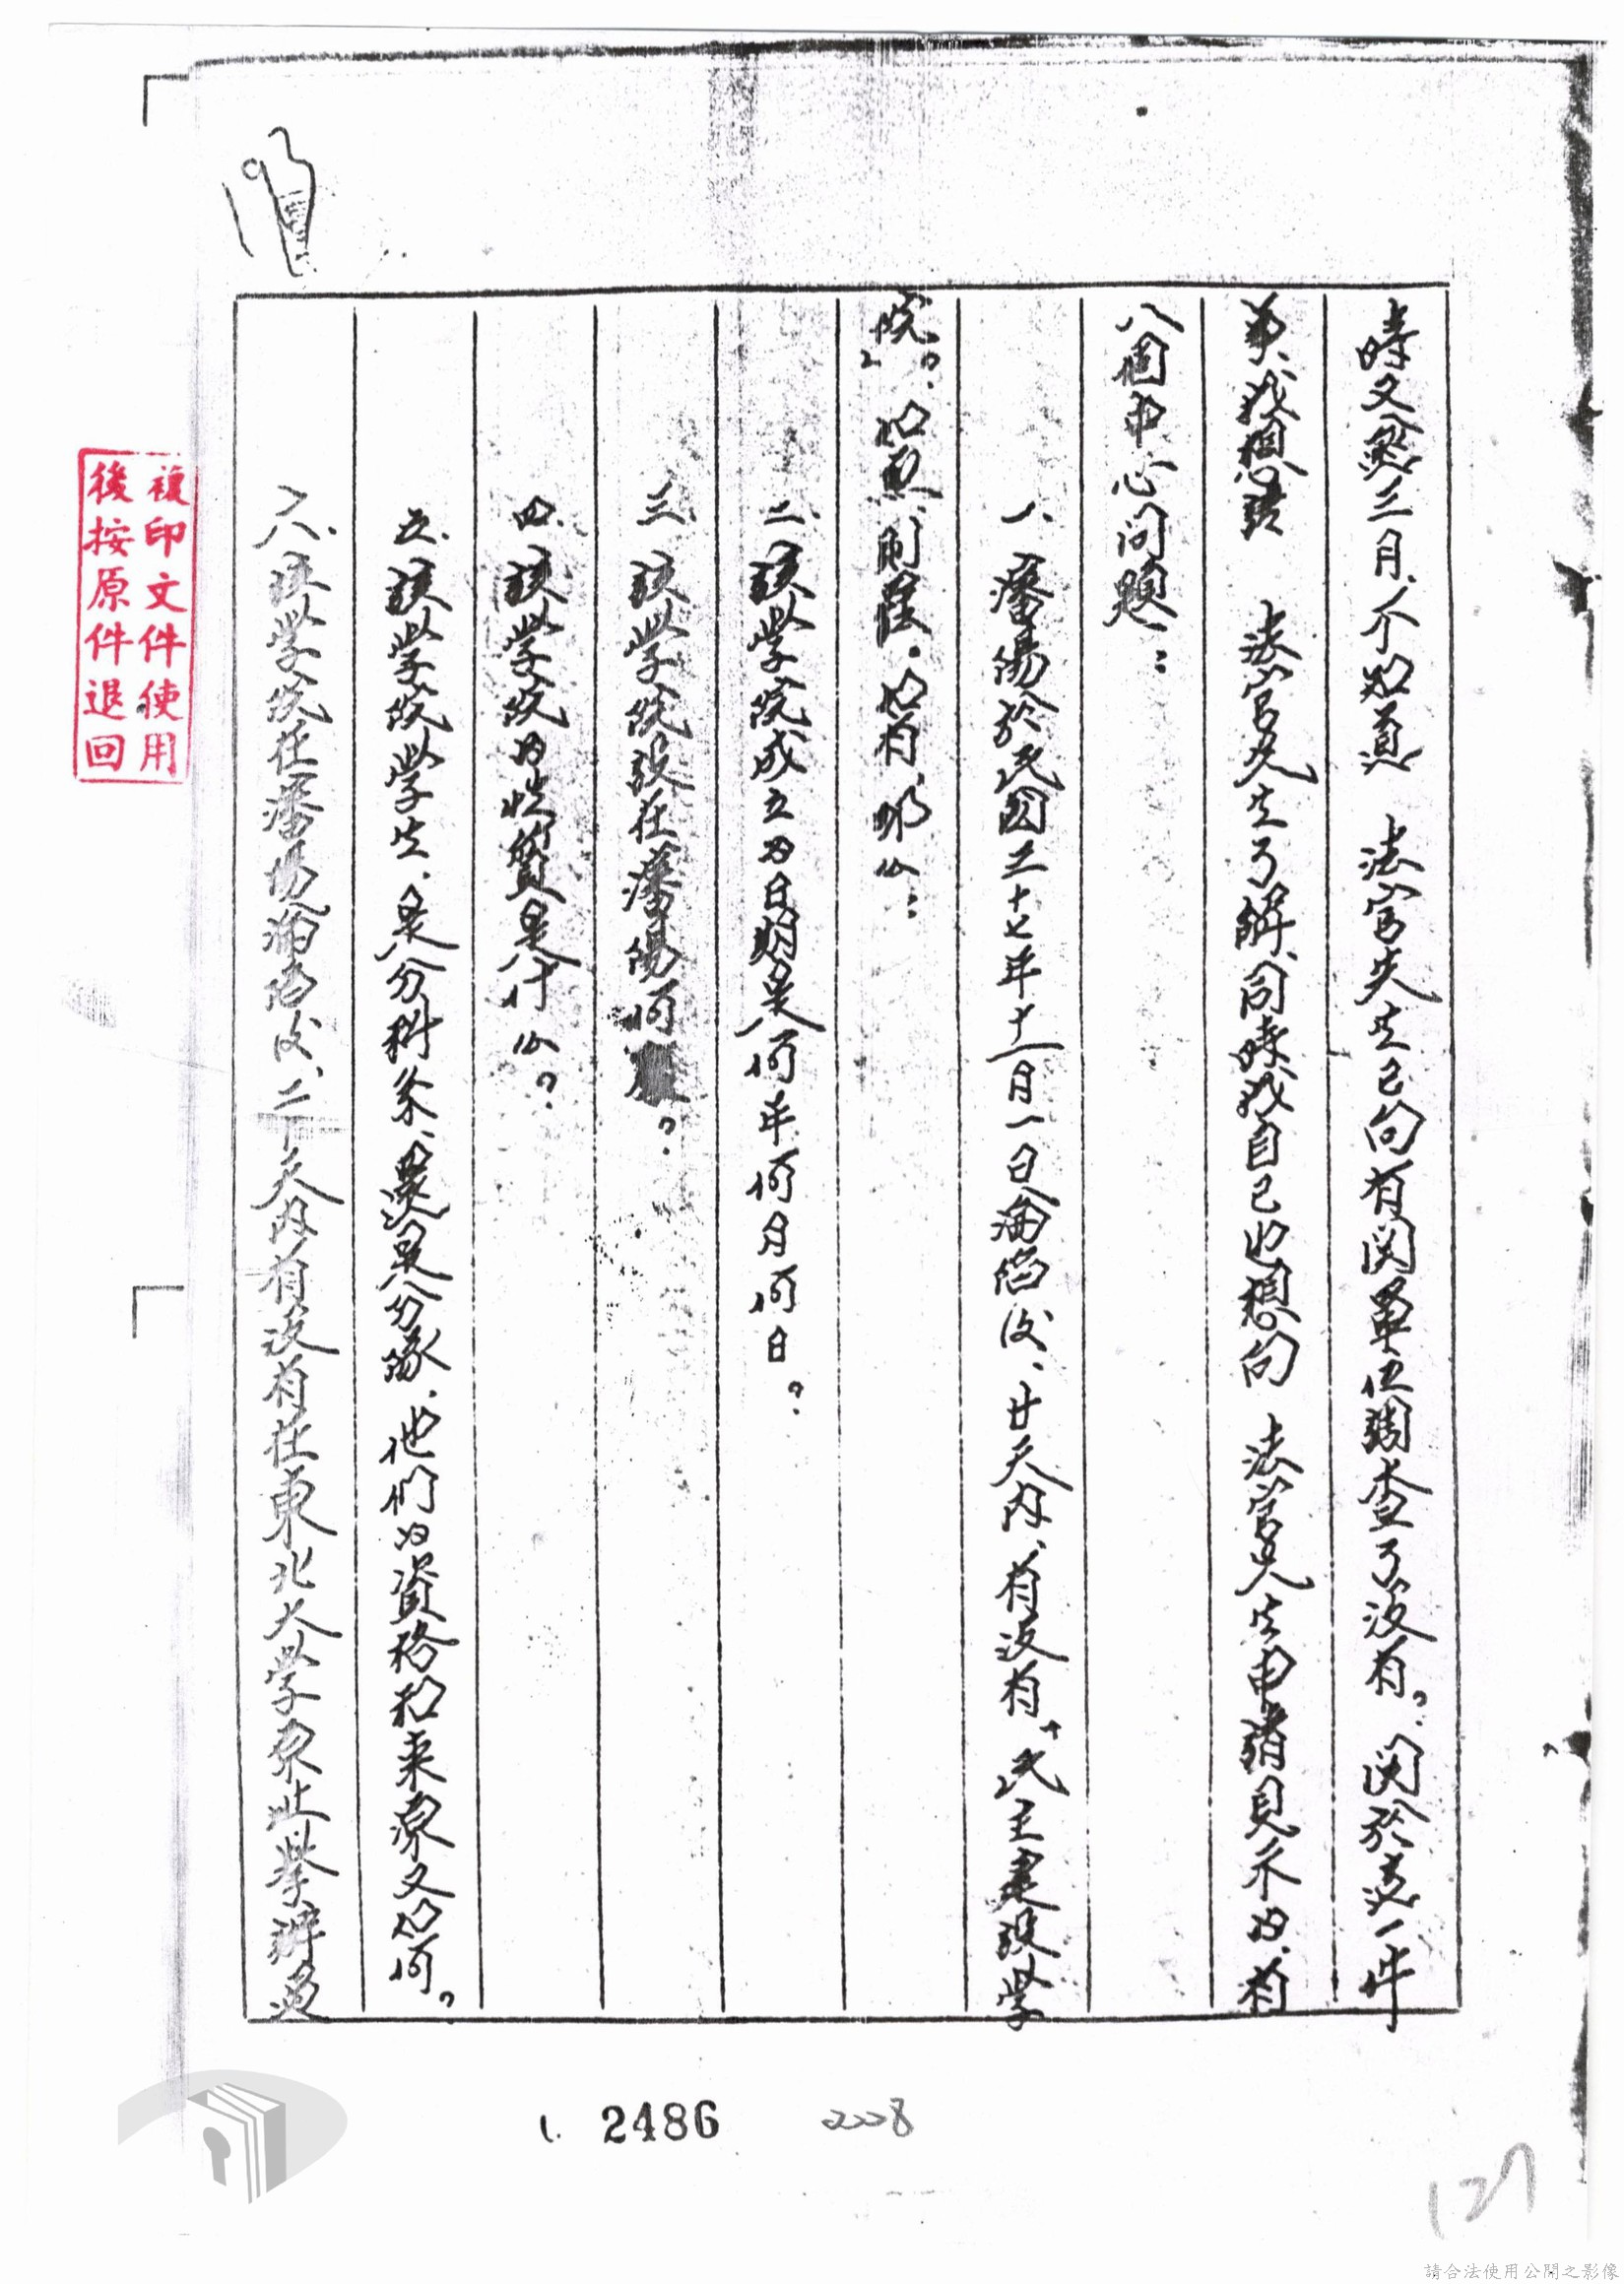 時又無三月、不知道　法官先生已向有関單位調查了沒有？関於這一件
事、我想請　法官先生了解、同時我自己也想向　法官先生申請見示的、有
八個中心問題：
一、瀋陽於民国三十七年十一月一日淪陷後、廿天內、有沒有「民主建設學
院」？如無、則罷。如有、那么：
二、該學院成立的日期是何年何月何日？
三、該學院設在瀋陽何處？
四、該學院的性質是什么？
五、該學院學生、是分科系、還是分隊、他們的資格和來源又如何？
八、該學院在瀋陽淪陷後、二十天內有沒有在東北大學原址舉辦過
複印文件使用
後按原件退回
2486
127
請合法使用公開之影像